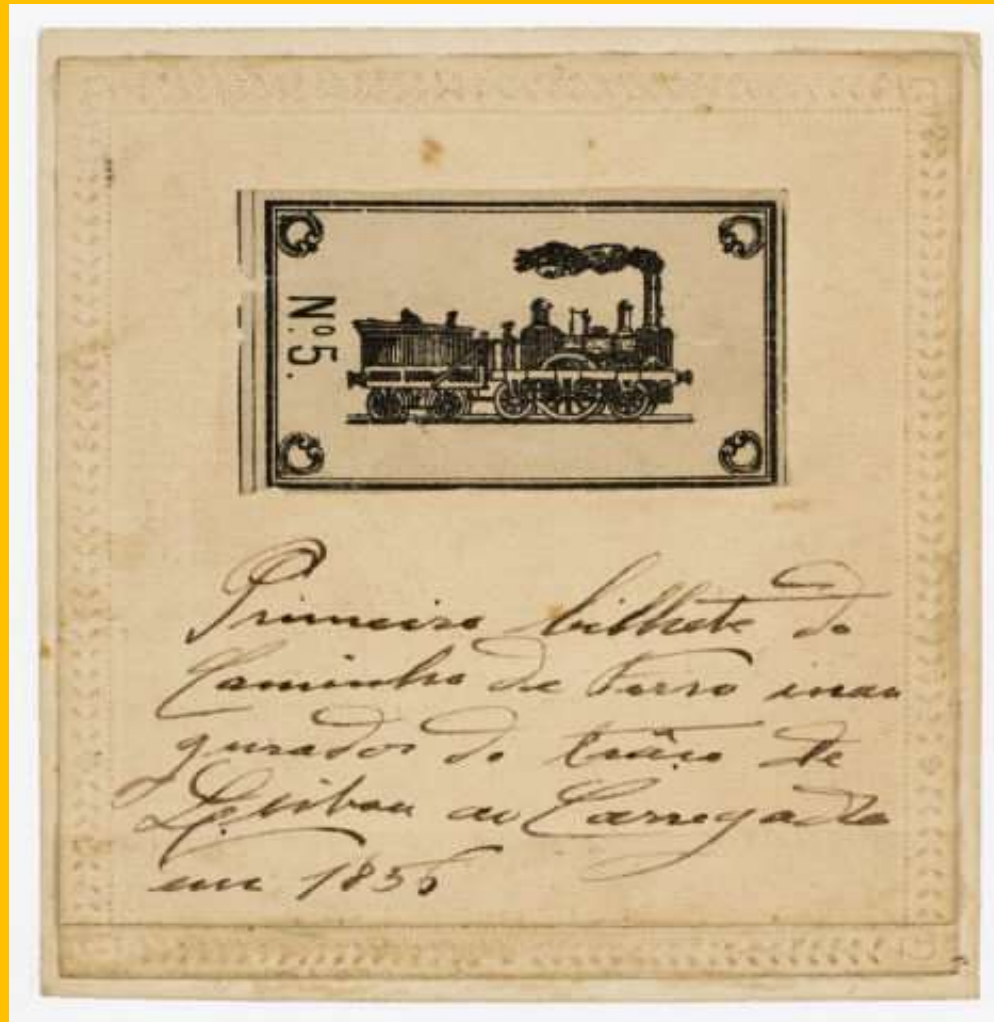 Nº 5.
Primeiro bilhete do
Caminho de Ferro inau
gurador do trôço de
Lisboa ao Carregado
em 1856